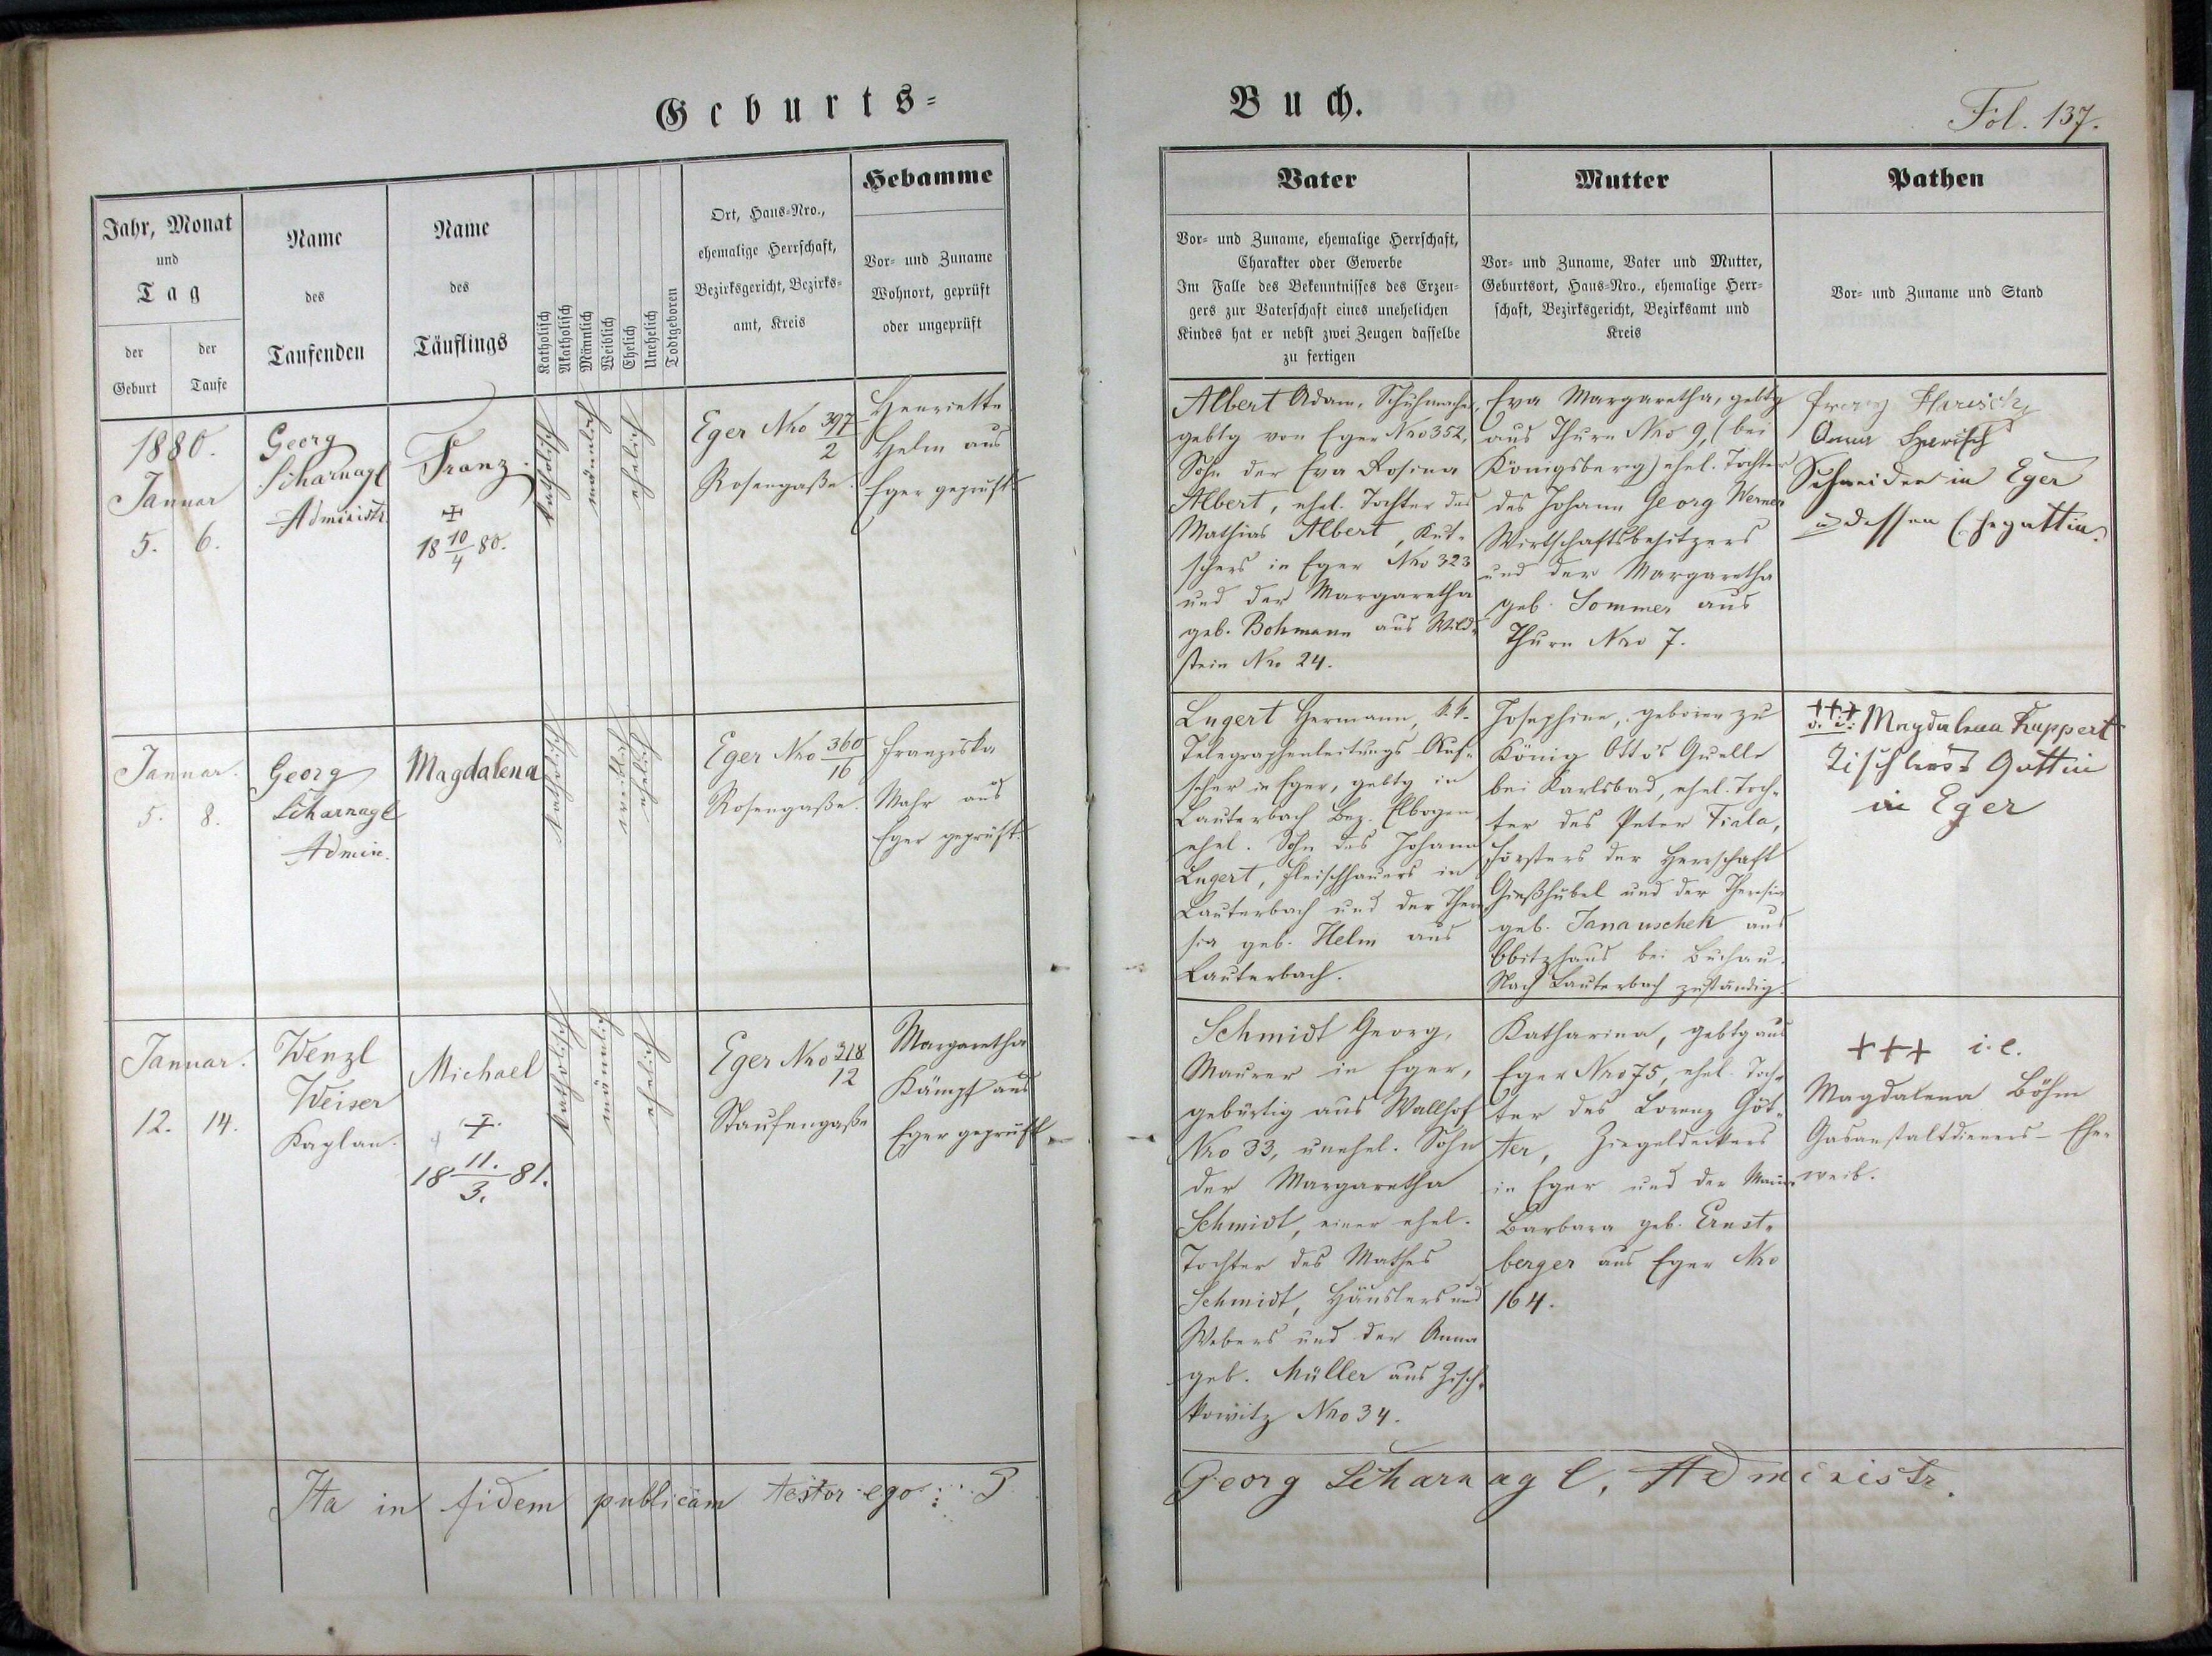 Geburts=
Buch.
Fol. 137.
Jahr, Monat
und
Tag
der
Geburt
der
Taufe
Name
des
Taufenden
Name
des
Täuflings
Katholisch
Akatholisch
Männlich
Weiblich
Ehelich
Unehelich
Todtgeboren
Ort, Haus=Nro.,
ehemalige Herrschaft,
Bezirksgericht, Bezirks=
amt, Kreis
Hebamme
Vor= und Zuname
Wohnort, geprüft
oder ungeprüft
Vater
Vor= und Zuname, ehemalige Herrschaft,
Charakter oder Gewerbe
Im Falle des Bekenntnisses des Erzeu=
gers zur Vaterschaft eines unehelichen
Kindes hat er nebst zwei Zeugen dasselbe
zu fertigen
Mutter
Vor= und Zuname, Vater und Mutter,
Geburtsort, Haus=Nro., ehemalige Herr=
schaft, Bezirksgericht, Bezirksamt und
Kreis
Pathen
Vor= und Zuname und Stand
1880.
Januar
5. 6.
Georg
Scharnagl
Administr.
Franz.
18 10/4 80.
katholisch
männlich
ehelich
Eger Nro
2
Rosengaße.
Henriette
Helm aus
Eger geprüft.
Albert Adam, Schuhmacher,
gebtg von Eger Nro 352,
Sohn der Eva Rosina
Albert, ehel. Tochter des
Mathias Albert, Kut=
schers in Eger Nro 323
und der Margaretha
geb. Bohmann aus Wild=
stein Nro 24.
Eva Margaretha, gebtg
aus Thurn Nro 9, (bei
Königsberg) ehel. Tochter
des Johann Georg Werner
Wirtschaftsbesitzers
und der Margaretha
geb. Sommer aus
Thurn Nro 7.
Anna
Schneider in Eger
u dessen Ehegattin.
Januar.
5. 8.
Georg
Scharnagl
Admin.
Magdalena
katholisch
weiblich
ehelich
Eger Nro 360/16
Rosengaße.
Franziska
Mahr aus
Eger geprüft.
Lugert Hermann, k.k.
Telegraphenleitungs-Auf=
seher in Eger, gebtg in
Lauterbach Bez. Elbogen,
ehel. Sohn des Johann
Lugert, Fleischhauers in
Lauterbach und der There=
sia geb. Helm aus
Lauterbach.
Josephine, geboren zu
König Otto's Quelle
bei Karlsbad, ehel. Toch=
ter des Peter Fiala,
Försters der Herrschaft
Gießhübel und der Theresia
geb. Janauschek aus
bei Buchau.
Nach Lauterbach zuständig.
+++ Magdalena Ruppert
Tischlers Gattin
in Eger
Januar.
12. 14.
Wenzl
Weiser
Kaplan.
Michael
18 11./3. 81.
katholisch
männlich
ehelich
Eger Nro 318/12
Staufengaße
Margaretha
Kämpf aus
Eger geprüft
Schmidt Georg,
Maurer in Eger,
gebürtig aus Wallhof
Nro 33, unehel. Sohn
der Margaretha
Schmidt, einer ehel.
Tochter des Mathes
Schmidt, Häuslers und
Webers und der Anna
geb. Müller aus Zisch=
kowitz Nro 34.
Katharina, gebtg aus
Eger Nro 75, ehel. Toch=
ter des Lorenz Göt=
ter, Ziegeldeckers
in Eger und der
Barbara geb. Ernst=
berger aus Eger Nro
164.
+++ i. e.
Magdalena Böhm
Gasanstaltdieners- Ehe=
weib.
Ita in fidem publicam testor ego:
Georg Scharnagl, Administr.